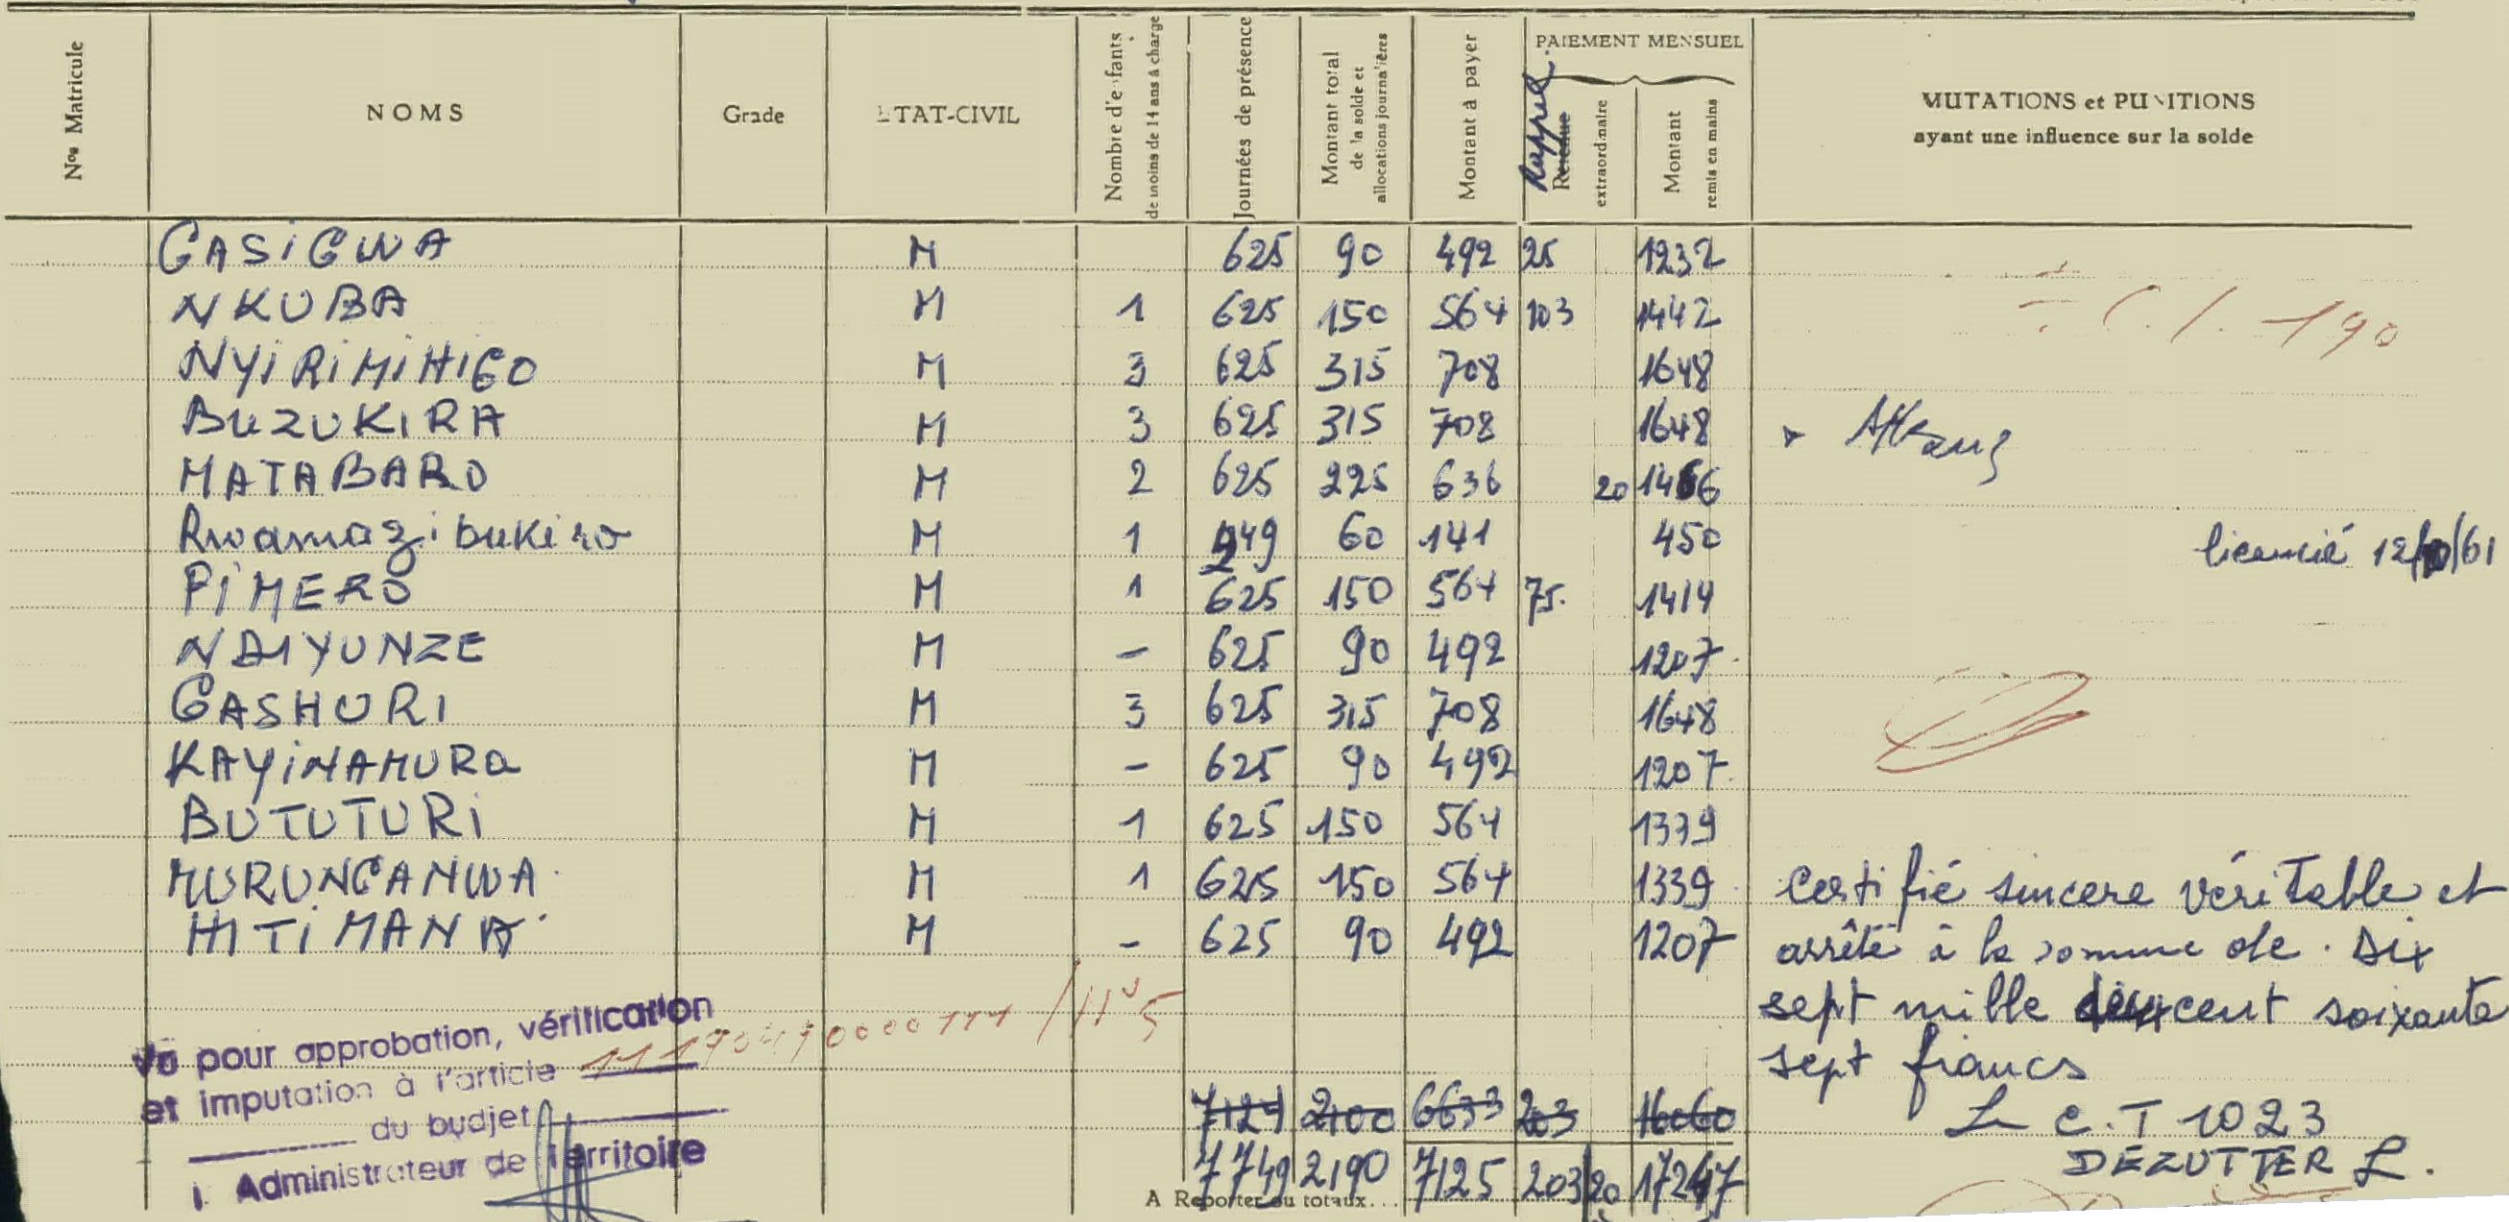 Nos Matricule NOMS Grade ETAT-CIVIL Nombre d'enfants de moins de 14 ans à charge Journées de présence Montant total de la solde et allocations journalières Montant à payer PAIEMENT MENSUEL Rappel Retenue extraordinaire Montant remis en mains MUTATIONS et PUNITIONS ayant une influence sur la solde
GASIGWA M 625 90 492 25 1232
NKUBA M 1 625 150 564 103 1442
÷ C. /. 190
NYIRIMIHIGO M 3 625 315 708 1648
BUZUKIRA M 3 625 315 708 1648
MATABARO M 2 625 225 636 20 1466
Rwamazibukiro M 1 249 60 141 450 licencié 12/10/61
PIMERO M 1 625 150 564 75. 1414
NDIYUNZE M - 625 90 492 1207.
GASHURI M 3 625 315 708 1648
KAYINAMURA M - 625 90 492 1207.
BUTUTURI M 1 625 150 564 1339
MURUNGANWA. M 1 625 150 564 1339. Certifié sincere véritable et
HITIMANA. M - 625 90 492 1207 arrêté à la somme de. Dix
sept mille deux cent soixante
sept francs
Vu pour approbation, vérification
et imputation à l'article
du budjet
7124 2100 6633 203 16060 Le C.T 1023
i. Administrateur de Territoire
7749 2190 7125 203 20 17267 DEZUTTER L.
A Reporter ou totaux...